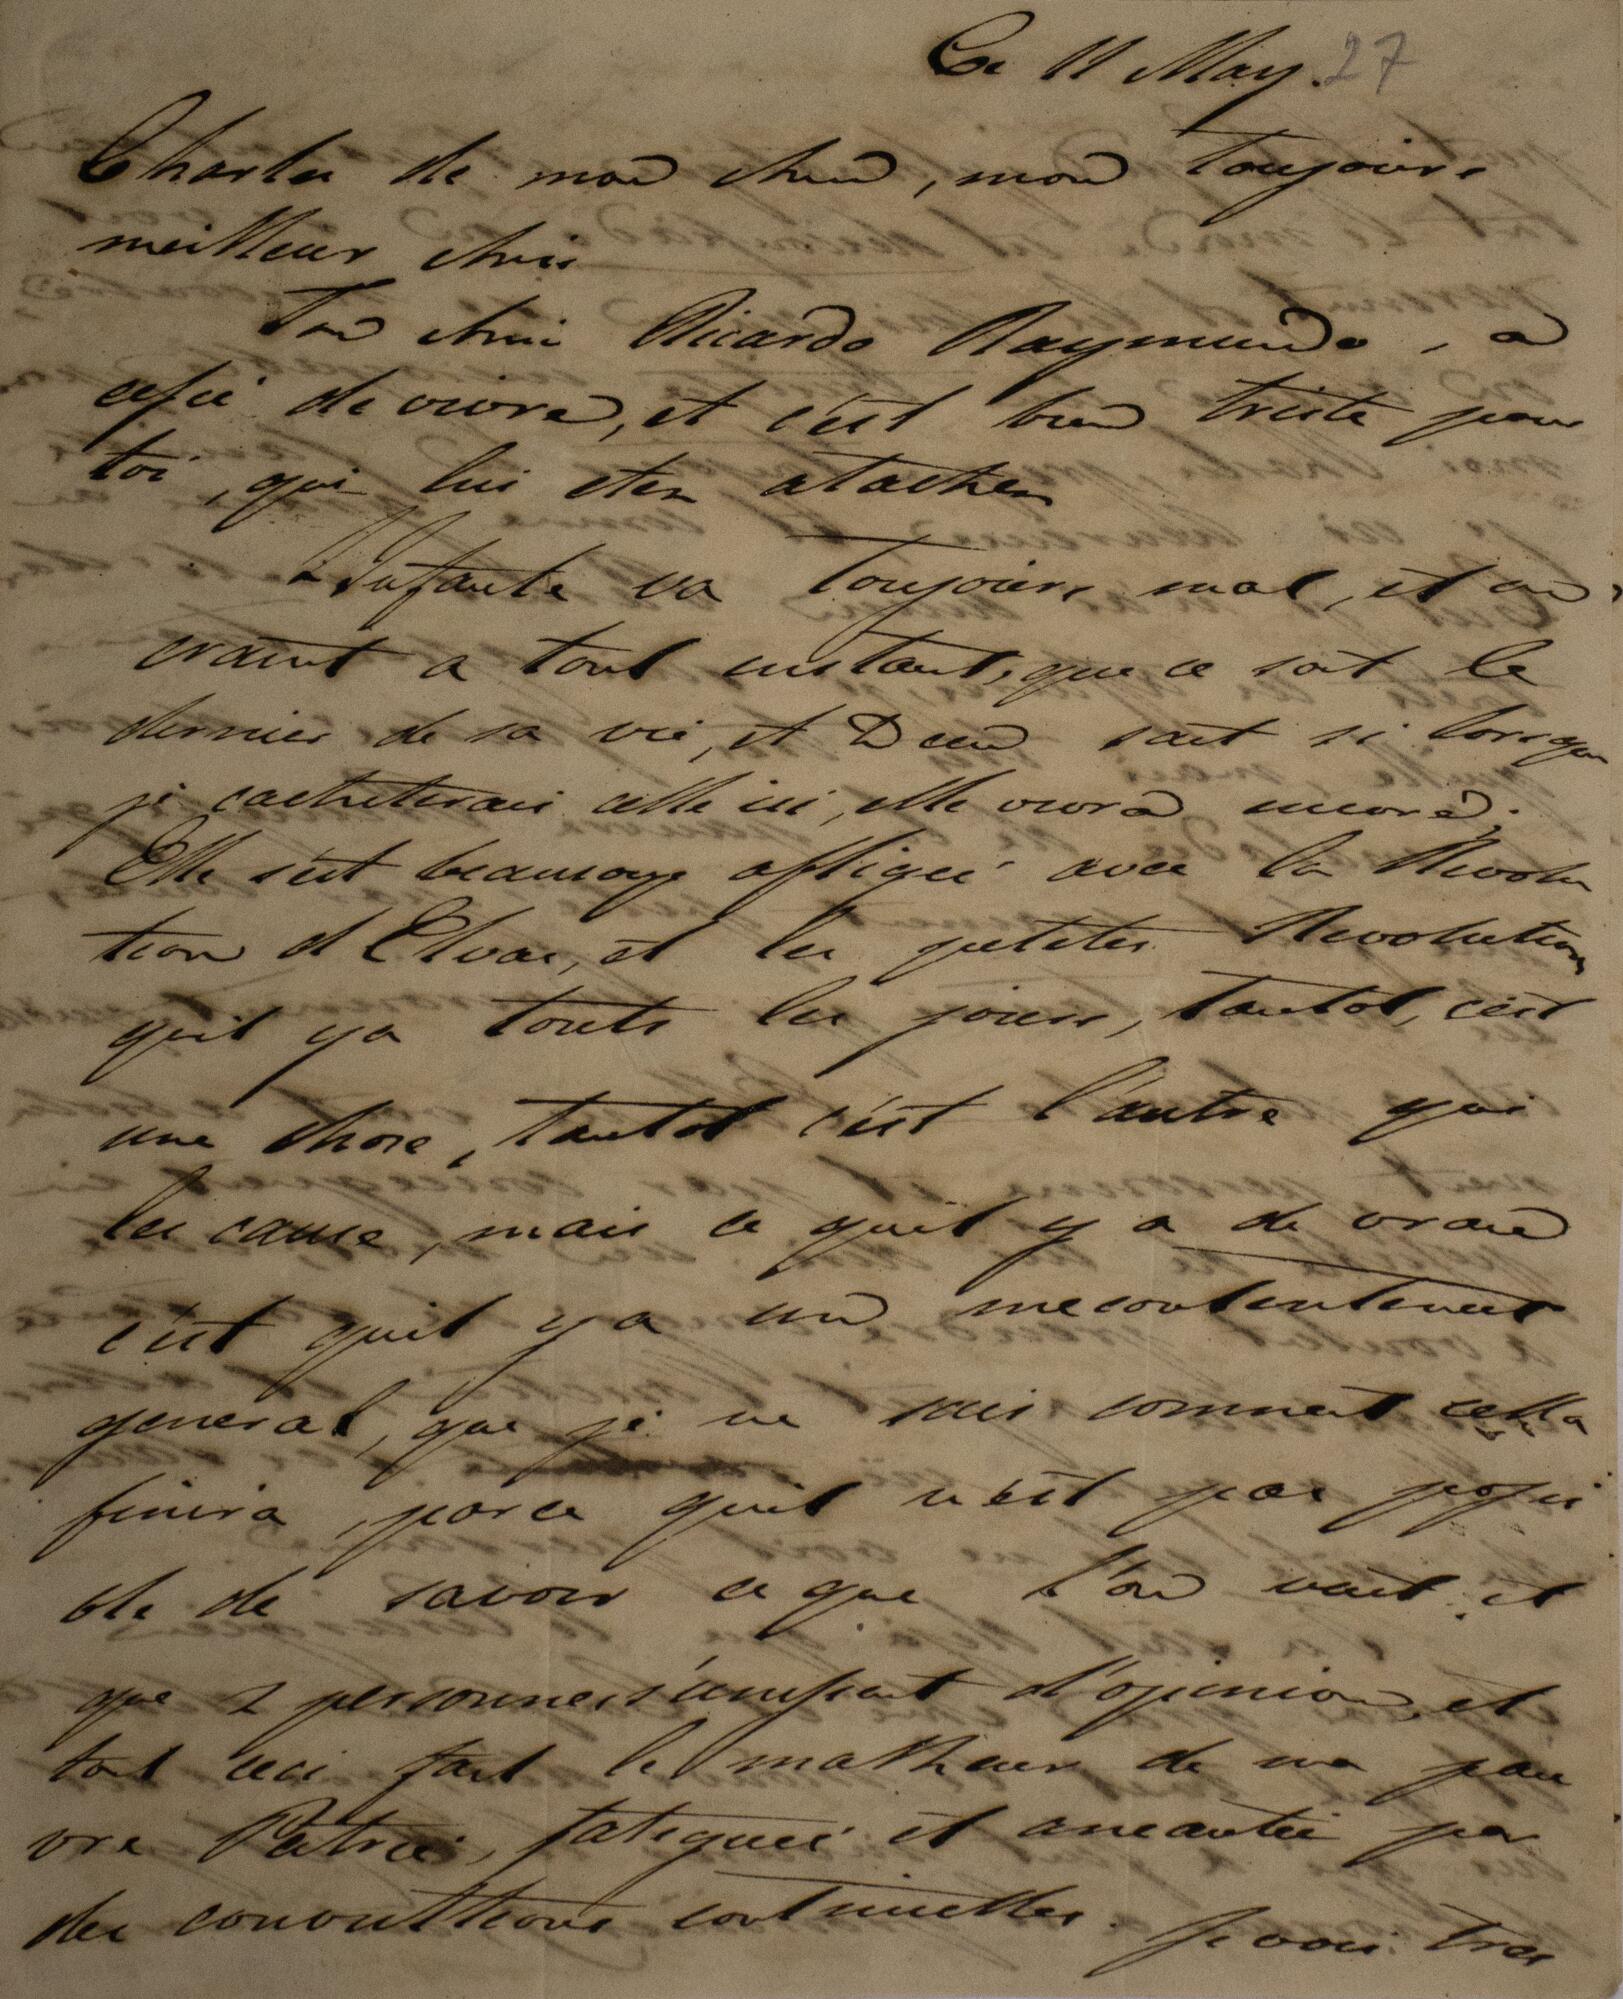 Ce 11 May. 27
Charles de mon Ame, mon toujours
meilleur Ami
Ton Ami Ricardo Raymundo, a
cessé de vivre, et c'est bien triste pour
toi, qui lui eten atachen
L'Infante va toujours mal, et on
craint a tout instant, que ce soit le
dernier de sa vie, et Dieu sait si lorsque
je cacheterais celle ici, elle vivra encore.
Elle s'est beaucoup affligée avec la Revolu
tion d'Elvas, et les petites Revolutions
quil ya touts les jours, tantot, cést
une chose, tantot c'est l'autre qui
les cause, mais ce quil y a de vrais
c'est quil ya un mecontentement
general, que je ne sais comment cella
finira, parce quil n'est pas possi
ble de savoir ce que l'on veut, et
que 2 personnes s'unissent d'opinion, et
tout ceci fait le malheur de ma pau
vre Patrie, fatiguée et aneantie par
des convultions continuelles. Je vois tres